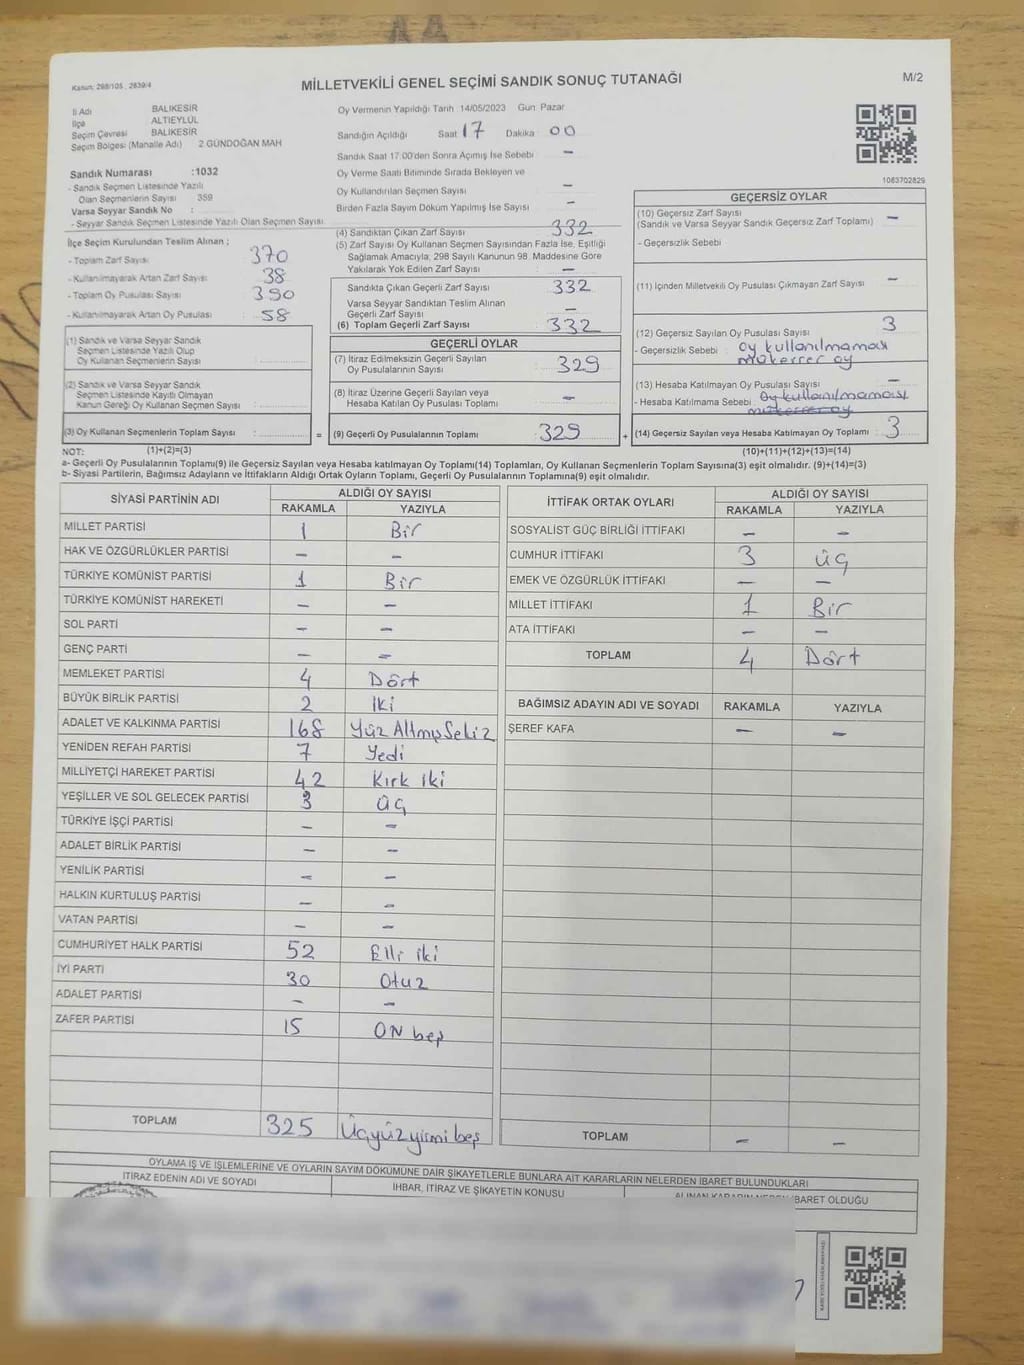 Kanun: 298/105, 2839/4
MİLLETVEKİLİ GENEL SEÇİMİ SANDIK SONUÇ TUTANAĞI
M/2
İl Adı BALIKESİR
İlçe ALTIEYLÜL
Seçim Çevresi BALIKESİR
Seçim Bölgesi (Mahalle Adı) 2 GÜNDOĞAN MAH
Sandık Numarası :1032
- Sandık Seçmen Listesinde Yazılı
Olan Seçmenlerin Sayısı 359
Varsa Seyyar Sandık No :
- Seyyar Sandık Seçmen Listesinde Yazılı Olan Seçmen Sayısı
İlçe Seçim Kurulundan Teslim Alınan ;
- Toplam Zarf Sayısı 370
- Kullanılmayarak Artan Zarf Sayısı 38
- Toplam Oy Pusulası Sayısı 390
- Kullanılmayarak Artan Oy Pusulası 58
(1) Sandık ve Varsa Seyyar Sandık
Seçmen Listesinde Yazılı Olup
Oy Kullanan Seçmenlerin Sayısı
(2) Sandık ve Varsa Seyyar Sandık
Seçmen Listesinde Kayıtlı Olmayan
Kanun Gereği Oy Kullanan Seçmen Sayısı
(3) Oy Kullanan Seçmenlerin Toplam Sayısı =
Oy Vermenin Yapıldığı Tarih :14/05/2023 Gün: Pazar
Sandığın Açıldığı Saat 17 Dakika 00
Sandık Saat 17:00'den Sonra Açımış İse Sebebi -
Oy Verme Saati Bitiminde Sırada Bekleyen ve
Oy Kullandırılan Seçmen Sayısı -
Birden Fazla Sayım Döküm Yapılmış İse Sayısı -
(4) Sandıktan Çıkan Zarf Sayısı 332
(5) Zarf Sayısı Oy Kullanan Seçmen Sayısından Fazla İse, Eşitliği
Sağlamak Amacıyla; 298 Sayılı Kanunun 98. Maddesine Göre
Yakılarak Yok Edilen Zarf Sayısı : -
Sandıkta Çıkan Geçerli Zarf Sayısı 332
Varsa Seyyar Sandıktan Teslim Alınan
Geçerli Zarf Sayısı -
(6) Toplam Geçerli Zarf Sayısı 332
GEÇERLİ OYLAR
(7) İtiraz Edilmeksizin Geçerli Sayılan
Oy Pusulalarının Sayısı 329
(8) İtiraz Üzerine Geçerli Sayılan veya
Hesaba Katılan Oy Pusulası Toplamı -
(9) Geçerli Oy Pusulalarının Toplamı 329 +
1063702829
GEÇERSİZ OYLAR
(10) Geçersiz Zarf Sayısı
(Sandık ve Varsa Seyyar Sandık Geçersiz Zarf Toplamı) -
- Geçersizlik Sebebi
(11) İçinden Milletvekili Oy Pusulası Çıkmayan Zarf Sayısı -
(12) Geçersiz Sayılan Oy Pusulası Sayısı 3
- Geçersizlik Sebebi : oy kullanılmaması
mükerrer oy
(13) Hesaba Katılmayan Oy Pusulası Sayısı -
- Hesaba Katılmama Sebebi : Oy kullanılmaması
mükerrer oy
(14) Geçersiz Sayılan veya Hesaba Katılmayan Oy Toplamı 3
NOT: (1)+(2)=(3) (10)+(11)+(12)+(13)=(14)
a- Geçerli Oy Pusulalarının Toplamı(9) ile Geçersiz Sayılan veya Hesaba katılmayan Oy Toplamı(14) Toplamları, Oy Kullanan Seçmenlerin Toplam Sayısına(3) eşit olmalıdır. (9)+(14)=(3)
b- Siyasi Partilerin, Bağımsız Adayların ve İttifakların Aldığı Ortak Oyların Toplamı, Geçerli Oy Pusulalarının Toplamına(9) eşit olmalıdır.
SİYASİ PARTİNİN ADI ALDIĞI OY SAYISI
RAKAMLA YAZIYLA
MİLLET PARTİSİ 1 Bir
HAK VE ÖZGÜRLÜKLER PARTİSİ - -
TÜRKİYE KOMÜNİST PARTİSİ 1 Bir
TÜRKİYE KOMÜNİST HAREKETİ - -
SOL PARTİ - -
GENÇ PARTİ - -
MEMLEKET PARTİSİ 4 Dört
BÜYÜK BİRLİK PARTİSİ 2 İki
ADALET VE KALKINMA PARTİSİ 168 Yüz Altmış Sekiz
YENİDEN REFAH PARTİSİ 7 Yedi
MİLLİYETÇİ HAREKET PARTİSİ 42 Kırk iki
YEŞİLLER VE SOL GELECEK PARTİSİ 3 üç
TÜRKİYE İŞÇİ PARTİSİ - -
ADALET BİRLİK PARTİSİ - -
YENİLİK PARTİSİ - -
HALKIN KURTULUŞ PARTİSİ - -
VATAN PARTİSİ - -
CUMHURİYET HALK PARTİSİ 52 Elli iki
İYİ PARTİ 30 Otuz
ADALET PARTİSİ - -
ZAFER PARTİSİ 15 ON beş
TOPLAM 325 Üçyüzyirmi beş
İTTİFAK ORTAK OYLARI ALDIĞI OY SAYISI
RAKAMLA YAZIYLA
SOSYALİST GÜÇ BİRLİĞİ İTTİFAKI - -
CUMHUR İTTİFAKI 3 üç
EMEK VE ÖZGÜRLÜK İTTİFAKI - -
MİLLET İTTİFAKI 1 Bir
ATA İTTİFAKI - -
TOPLAM 4 Dört
BAĞIMSIZ ADAYIN ADI VE SOYADI RAKAMLA YAZIYLA
ŞEREF KAFA - -
TOPLAM - -
OYLAMA İŞ VE İŞLEMLERİNE VE OYLARIN SAYIM DÖKÜMÜNE DAİR ŞİKAYETLERLE BUNLARA AİT KARARLARIN NELERDEN İBARET BULUNDUKLARI
İTİRAZ EDENİN ADI VE SOYADI
İHBAR, İTİRAZ VE ŞİKAYETİN KONUSU
ALINAN KARARIN NEDEN İBARET OLDUĞU